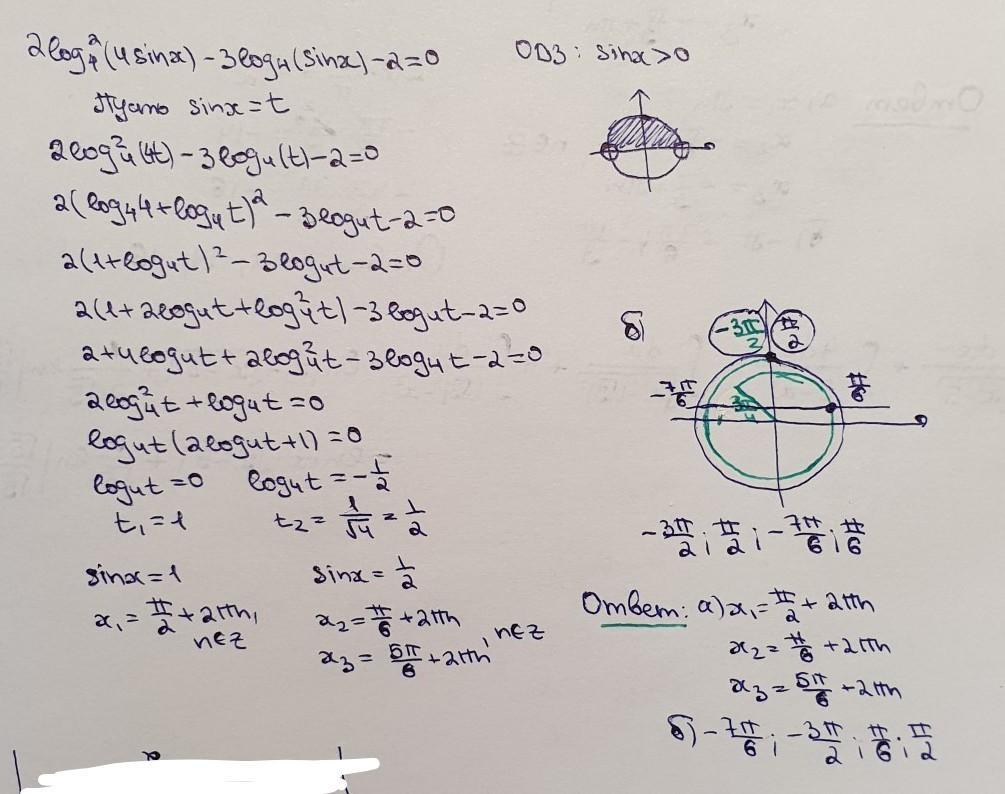 2log₄²(4sinx) - 3log₄(sinx) - 2 = 0
Пусть sinx = t
2log₄²(4t) - 3log₄(t) - 2 = 0
2(log₄4 + log₄t)² - 3log₄t - 2 = 0
2(1 + log₄t)² - 3log₄t - 2 = 0
2(1 + 2log₄t + log₄²t) - 3log₄t - 2 = 0
2 + 4log₄t + 2log₄²t - 3log₄t - 2 = 0
2log₄²t + log₄t = 0
log₄t(2log₄t + 1) = 0
log₄t = 0 log₄t = -1/2
t₁ = 1 t₂ = 1/√4 = 1/2
sinx = 1 sinx = 1/2
x₁ = π/2 + 2πn, n∈Z
x₂ = π/6 + 2πn
x₃ = 5π/6 + 2πn, n∈Z
ОДЗ: sinx > 0
б)
-3π/2 π/2
-7π/6 π/6
3π/4
-3π/2; π/2; -7π/6; π/6
Ответ: а) x₁ = π/2 + 2πn
x₂ = π/6 + 2πn
x₃ = 5π/6 + 2πn
б) -7π/6; -3π/2; π/6; π/2